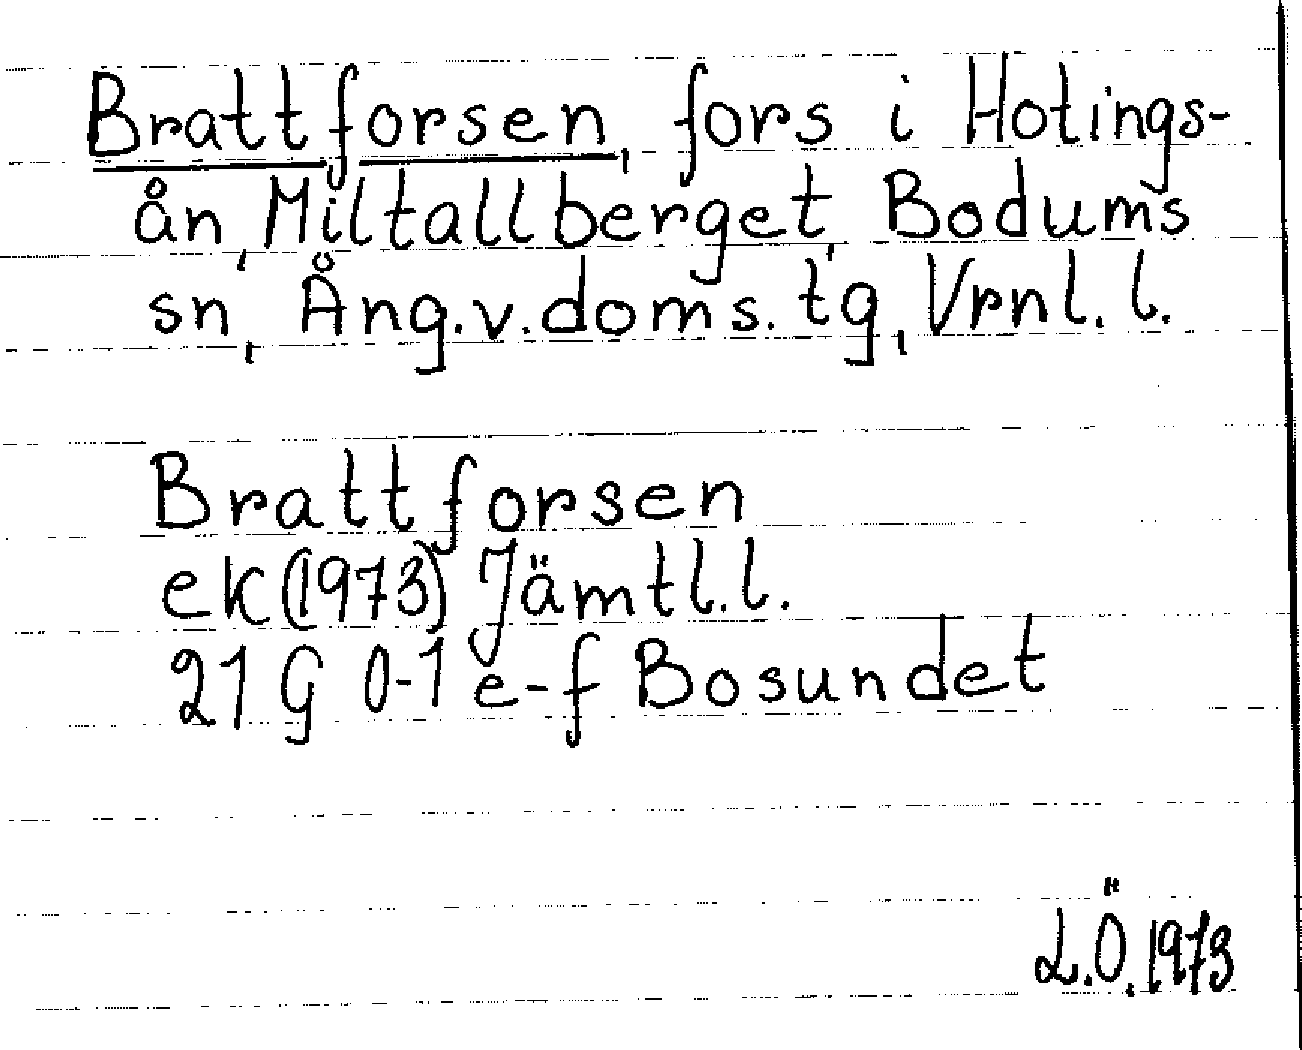 Brattforsen, fors i Hotings-
ån, Miltallberget, Bodums
sn, Ång.v.doms.tg, Vrnl.l.
Brattforsen
ek(1973) Jämtl.l.
21 G 0-1 e-f Bosundet
L.Ö.1973